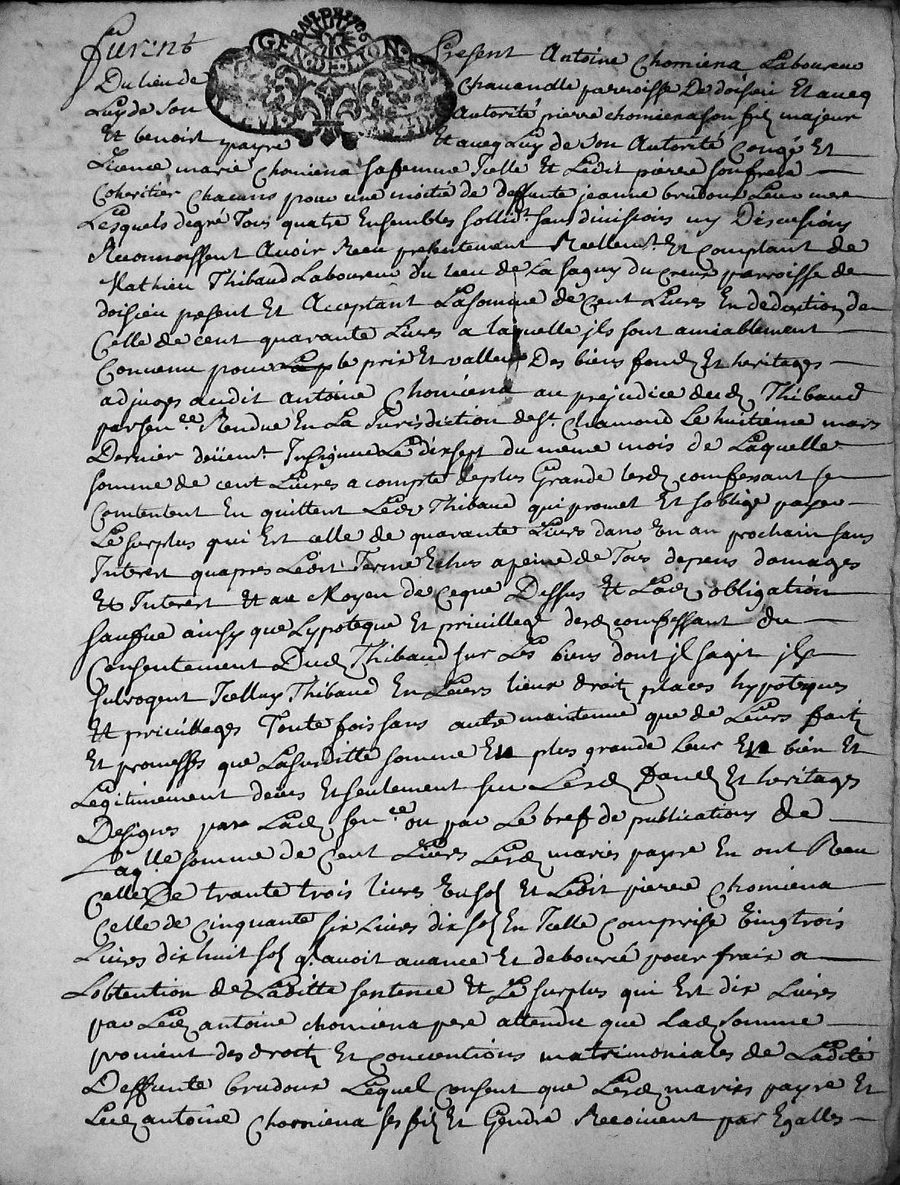 GEN. DE LION
Furent present Antoine Chomiena Laboureur
Du lieu de Chavanolle parroisse De doisieu Et aveq
Luy de Son Autorité pierre chomiena son filz majeur
Et benoist payre Et aveq Luy de Son Autorité Congé Et
Licence marie Chomiena sa femme Icelle Et Ledit pierre son frere
Coheritier Chacuns pour une moitie de deffunte jeanne brudoux Leur mere
Lesquels de gré Tous quatre Ensembles sollid.t sans divisions ny Discusions
Reconnoissent Avoir Receu presentement Reellem.t Et Comptant de
Mathieu Thibaud Laboureur du lieu de La faguy du Creux parroisse de
doisieu present Et Acceptant La somme de Cent Livres En deduction de
Celle de cent quarante Livres a laquelle jls sont amiablement
Convenu pour le prix Et valleur Des biens fondz Et heritages
adjuges audit antoine Chomiena au prejudice dud. Thibaud
par sen.ce Rendue En La Jurisdiction de S.t Chamond Le huitieme mars
Dernier deüem.t Insignuee Le dixsept du meme mois de Laquelle
somme de cent Livres a compte de plus Grande lesd. confessant se
Contentent En quittent Led. Thibaud qui promet Et soblige payer
Le surplus qui Est celle de quarante Livres dans En an prochain sans
Interest quapres Ledit Terme Echus a peine de Tous depens domages
Et Interest Et au Moyen de Ceque Dessus Et Lad. obligation
saufue ainsy que Lypoteque Et privillege desd. confessant du
Consentement Dud. Thibaud sur Les biens dont jl sagit jls
subrogent Icelluy Thibaud En Leurs lieux droitz places hypoteques
Et privillages Toute fois sans autre maintenue que de Leurs faitz
Et promesses que La susditte somme Et plus grande Leur Est bien Et
Legitimement deües Et seulement sur Lesd. fondz Et heritages
Designes par Lad. sen.ce ou par Le bref de publications de
Laq.lle somme de Cent Livres Lesd. maries payre En ont Receu
Celle De trante trois livres Ensol Et Ledit pierre Chomiena
Celle de Cinquante six Livres dix solz En Icelle Comprise Vingtrois
Livres dix huit solz q. avoit avance Et debource pour fraix a
Lobtention de Laditte sentence Et Le surplus qui Est dix Livres
par Led. antoine chomiena pere attendu que Lad. somme
provient des droitz Et conventions matrimoniales de Ladite
Deffunte brudoux Lequel consent que Lesd. maries payre Et
Led. antoine Chomiena ses filz Et Gendre Recoivent par Egalles